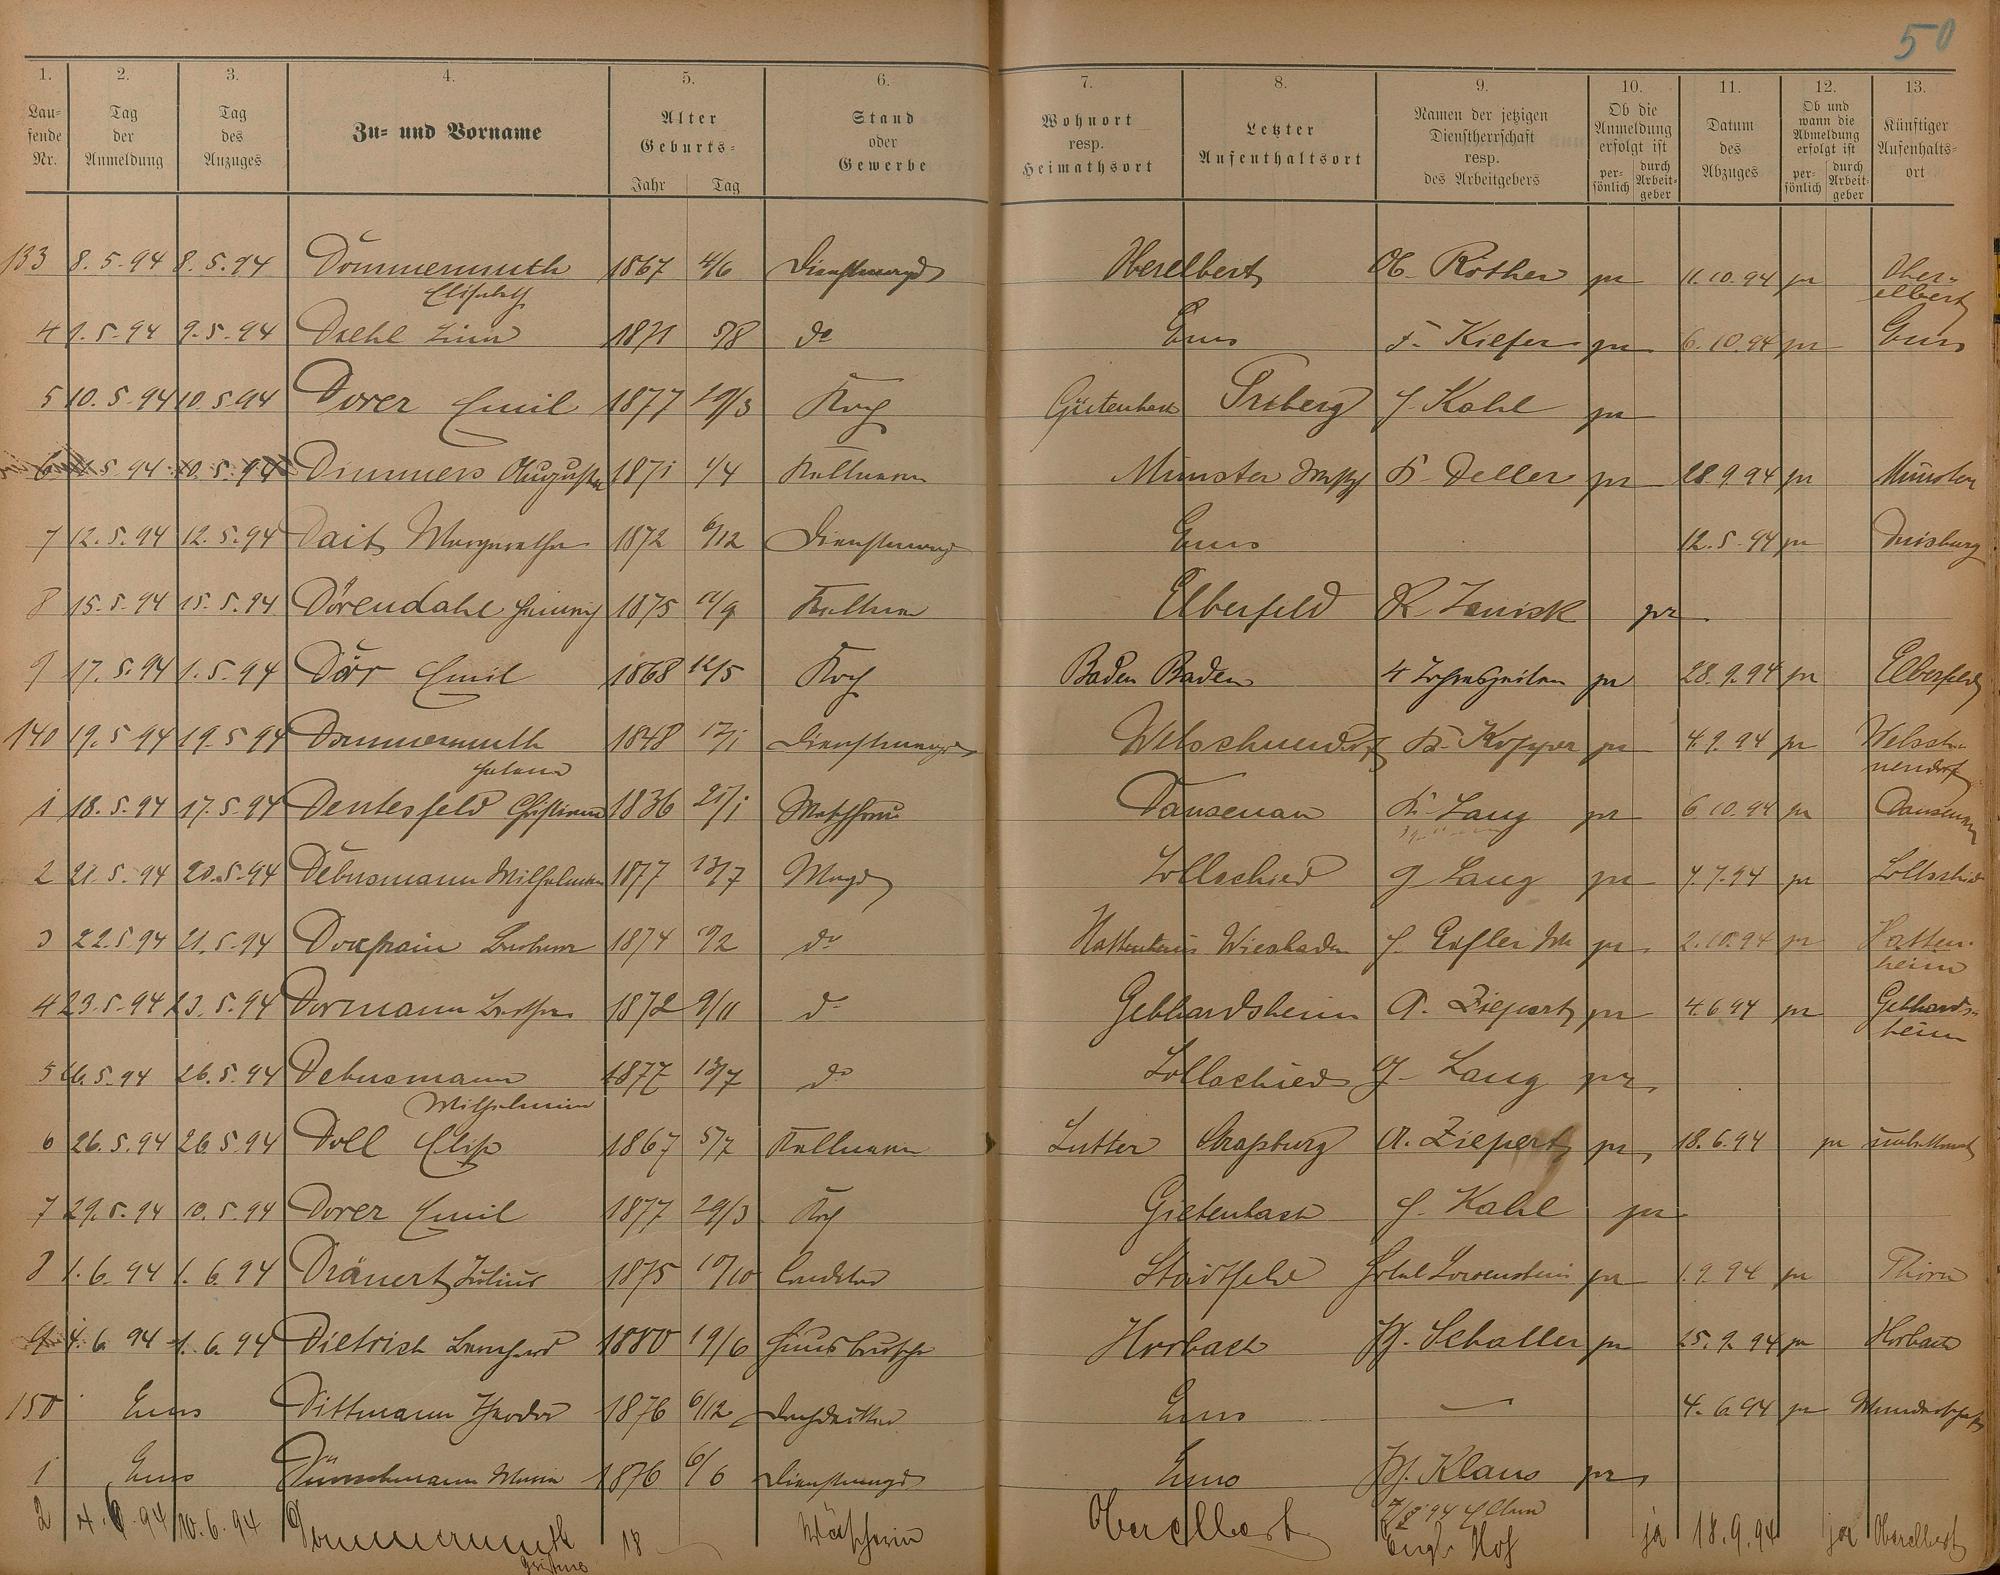 50
1. 2. 3. 4. 5. 6. 7. 8. 9. 10. 11. 12. 13.
Lau-fende Nr. Tag der Anmeldung Tag des Anzuges Zu- und Vorname Alter Geburts- Jahr Tag Stand oder Gewerbe Wohnort resp. Heimathsort Letzter Aufenthaltsort Namen der jetzigen Dienstherrschaft resp. des Arbeitgebers Ob die Anmeldung erfolgt ist per-sönlich durch Arbeit-geber Datum des Abzuges Ob und wann die Abmeldung erfolgt ist per-sönlich durch Arbeit-geber Künftiger Aufenthalts-ort
133 8.5.94 8.5.94 Dommermuth Elisabeth 1867 4/6 Dienstmagd Oberelbert Rother pr 11.10.94 pr Ober-elbert
4 9.5.94 Diehl 1871 5/8 do Ems F. Kiefer pr 6.10.94 pr Ems
5 10.5.94 10.5.94 Dorer Emil 1877 29/3 Koch Gütenbach Triberg J. Kahl pr
6 10.5.94 Auguste 1871 1/4 Kellnerin Münster Deller pr 28.9.94 pr Münster
7 12.5.94 12.5.94 Margaretha 1872 6/12 Dienstmagd Ems 12.5.94 pr Duisburg
8 15.5.94 15.5.94 Dörendahl Heinrich 1875 Kellner Elberfeld pr
9 17.5.94 1.5.94 Dörr Emil 1868 12/5 Koch Baden Baden 4 Jahreszeiten pr 28.9.94 pr Elberfeld
140 19.5.94 19.5.94 Dommermuth Helena 1848 Dienstmagd Welschneudorf pr 4.9.94 pr Welsch-neudorf
1 18.5.94 17.5.94 Dentesfeld Christiane 1836 27/1 Waschfrau Dausenau Lang pr 6.10.94 pr Dausenau
2 21.5.94 20.5.94 Debusmann Wilhelmine 1877 13/7 Magd Lollschied G Lang pr 4.7.94 pr Lollschied
3 22.5.94 21.5.94 1874 do Hattenheim Wiesbaden pr 2.10.94 pr Hatten-heim
4 23.5.94 23.5.94 Dormann 1872 9/11 do Gebhardsheim A. Ziepert pr 4.6.94 pr Gebhards-heim
5 26.5.94 26.5.94 Debusmann Wilhelmine 1877 13/7 do Lollschied G. Lang pr
6 26.5.94 26.5.94 Doll Elise 1867 5/7 Kellnerin Lutter Straßburg A. Ziepert pr 18.6.94 pr unbekannt
7 29.5.94 10.5.94 Dorer Emil 1877 29/3 Koch Gietenbach J. Kahl pr
8 1.6.94 1.6.94 Dränert Julius 1875 10/10 Conditor Stadtfeld Hotel Loewenstein pr 1.9.94 pr Thorn
9 4.6.94 1.6.94 Dietrich Bernhard 1880 19/6 Hausbursche Horbach Schaller pr 25.9.94 pr Horbach
150 Ems Dittmann Theodor 1876 6/12 Ems — 4.6.94 pr Wanderschaft
1 Ems Dünschmann Maria 1876 6/6 Dienstmagd Ems Klaus pr
2 4.6.94 10.6.94 Dommermuth 18 Wäscherin Oberelbert Engl. Hof ja 18.9.94 ja Oberelbert